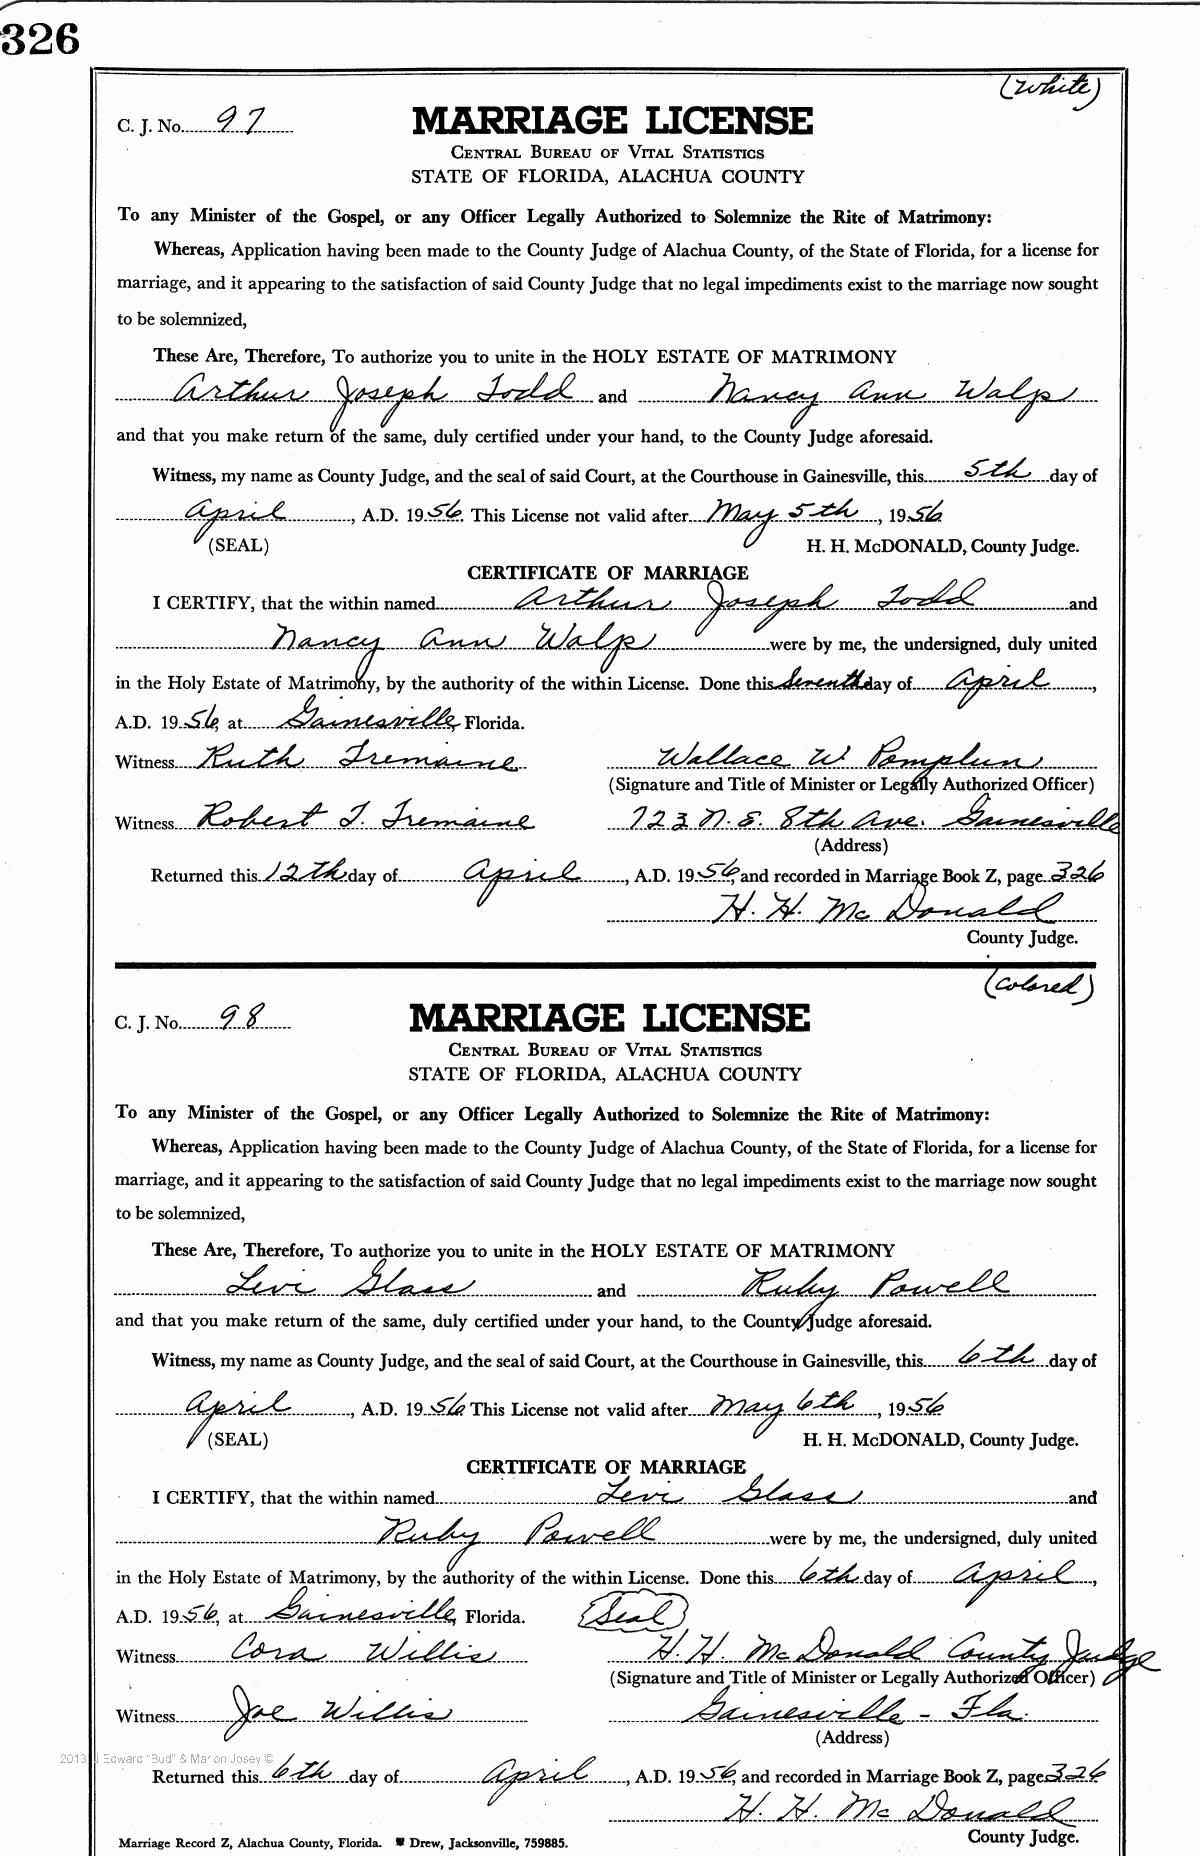 326
(White)
C. J. No. 97
MARRIAGE LICENSE
CENTRAL BUREAU OF VITAL STATISTICS
STATE OF FLORIDA, ALACHUA COUNTY
To any Minister of the Gospel, or any Officer Legally Authorized to Solemnize the Rite of Matrimony:
Whereas, Application having been made to the County Judge of Alachua County, of the State of Florida, for a license for
marriage, and it appearing to the satisfaction of said County Judge that no legal impediments exist to the marriage now sought
to be solemnized,
These Are, Therefore, To authorize you to unite in the HOLY ESTATE OF MATRIMONY
Arthur Joseph Todd and Nancy Ann Walp
and that you make return of the same, duly certified under your hand, to the County Judge aforesaid.
Witness, my name as County Judge, and the seal of said Court, at the Courthouse in Gainesville, this 5th day of
April, A.D. 1956. This License not valid after May 5th, 1956
(SEAL) H. H. McDONALD, County Judge.
CERTIFICATE OF MARRIAGE
I CERTIFY, that the within named Arthur Joseph Todd and
Nancy Ann Walp were by me, the undersigned, duly united
in the Holy Estate of Matrimony, by the authority of the within License. Done this Seventh day of April,
A.D. 1956, at Gainesville, Florida.
Witness Ruth Tremaine Wallace W Pomplun
(Signature and Title of Minister or Legally Authorized Officer)
Witness Robert T. Tremaine 723 N.E. 8th Ave. Gainesville
(Address)
Returned this 12th day of April, A.D. 1956, and recorded in Marriage Book Z, page 326
H. H. McDonald
County Judge.
(Colored)
C. J. No. 98
MARRIAGE LICENSE
CENTRAL BUREAU OF VITAL STATISTICS
STATE OF FLORIDA, ALACHUA COUNTY
To any Minister of the Gospel, or any Officer Legally Authorized to Solemnize the Rite of Matrimony:
Whereas, Application having been made to the County Judge of Alachua County, of the State of Florida, for a license for
marriage, and it appearing to the satisfaction of said County Judge that no legal impediments exist to the marriage now sought
to be solemnized,
These Are, Therefore, To authorize you to unite in the HOLY ESTATE OF MATRIMONY
Levi Glass and Ruby Powell
and that you make return of the same, duly certified under your hand, to the County Judge aforesaid.
Witness, my name as County Judge, and the seal of said Court, at the Courthouse in Gainesville, this 6th day of
April, A.D. 1956. This License not valid after May 6th, 1956
(SEAL) H. H. McDONALD, County Judge.
CERTIFICATE OF MARRIAGE
I CERTIFY, that the within named Levi Glass and
Ruby Powell were by me, the undersigned, duly united
in the Holy Estate of Matrimony, by the authority of the within License. Done this 6th day of April,
A.D. 1956, at Gainesville, Florida. (Seal)
Witness Cora Willis H. H. McDonald County Judge
(Signature and Title of Minister or Legally Authorized Officer)
Witness Joe Willis Gainesville - Fla.
(Address)
2013 J Edward "Bud" & Marion Josey ©
Returned this 6th day of April, A.D. 1956, and recorded in Marriage Book Z, page 326
H. H. McDonald
Marriage Record Z, Alachua County, Florida. Drew, Jacksonville, 759885. County Judge.